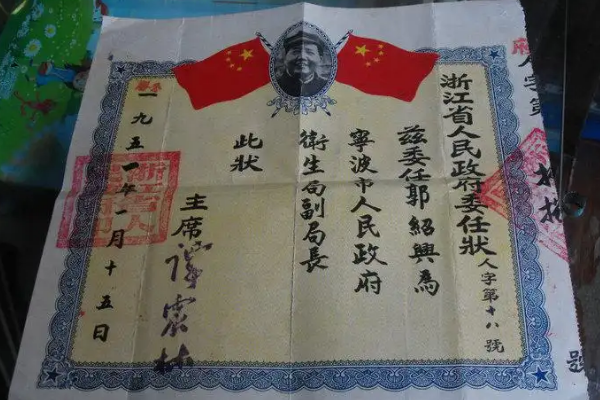 浙江省人民政府委任狀
人字第十八號
茲委任郭紹興為
寧波市人民政府
衛生局副局長
此狀
主席 譚震林
一九五一年一月十五日
人字第
號